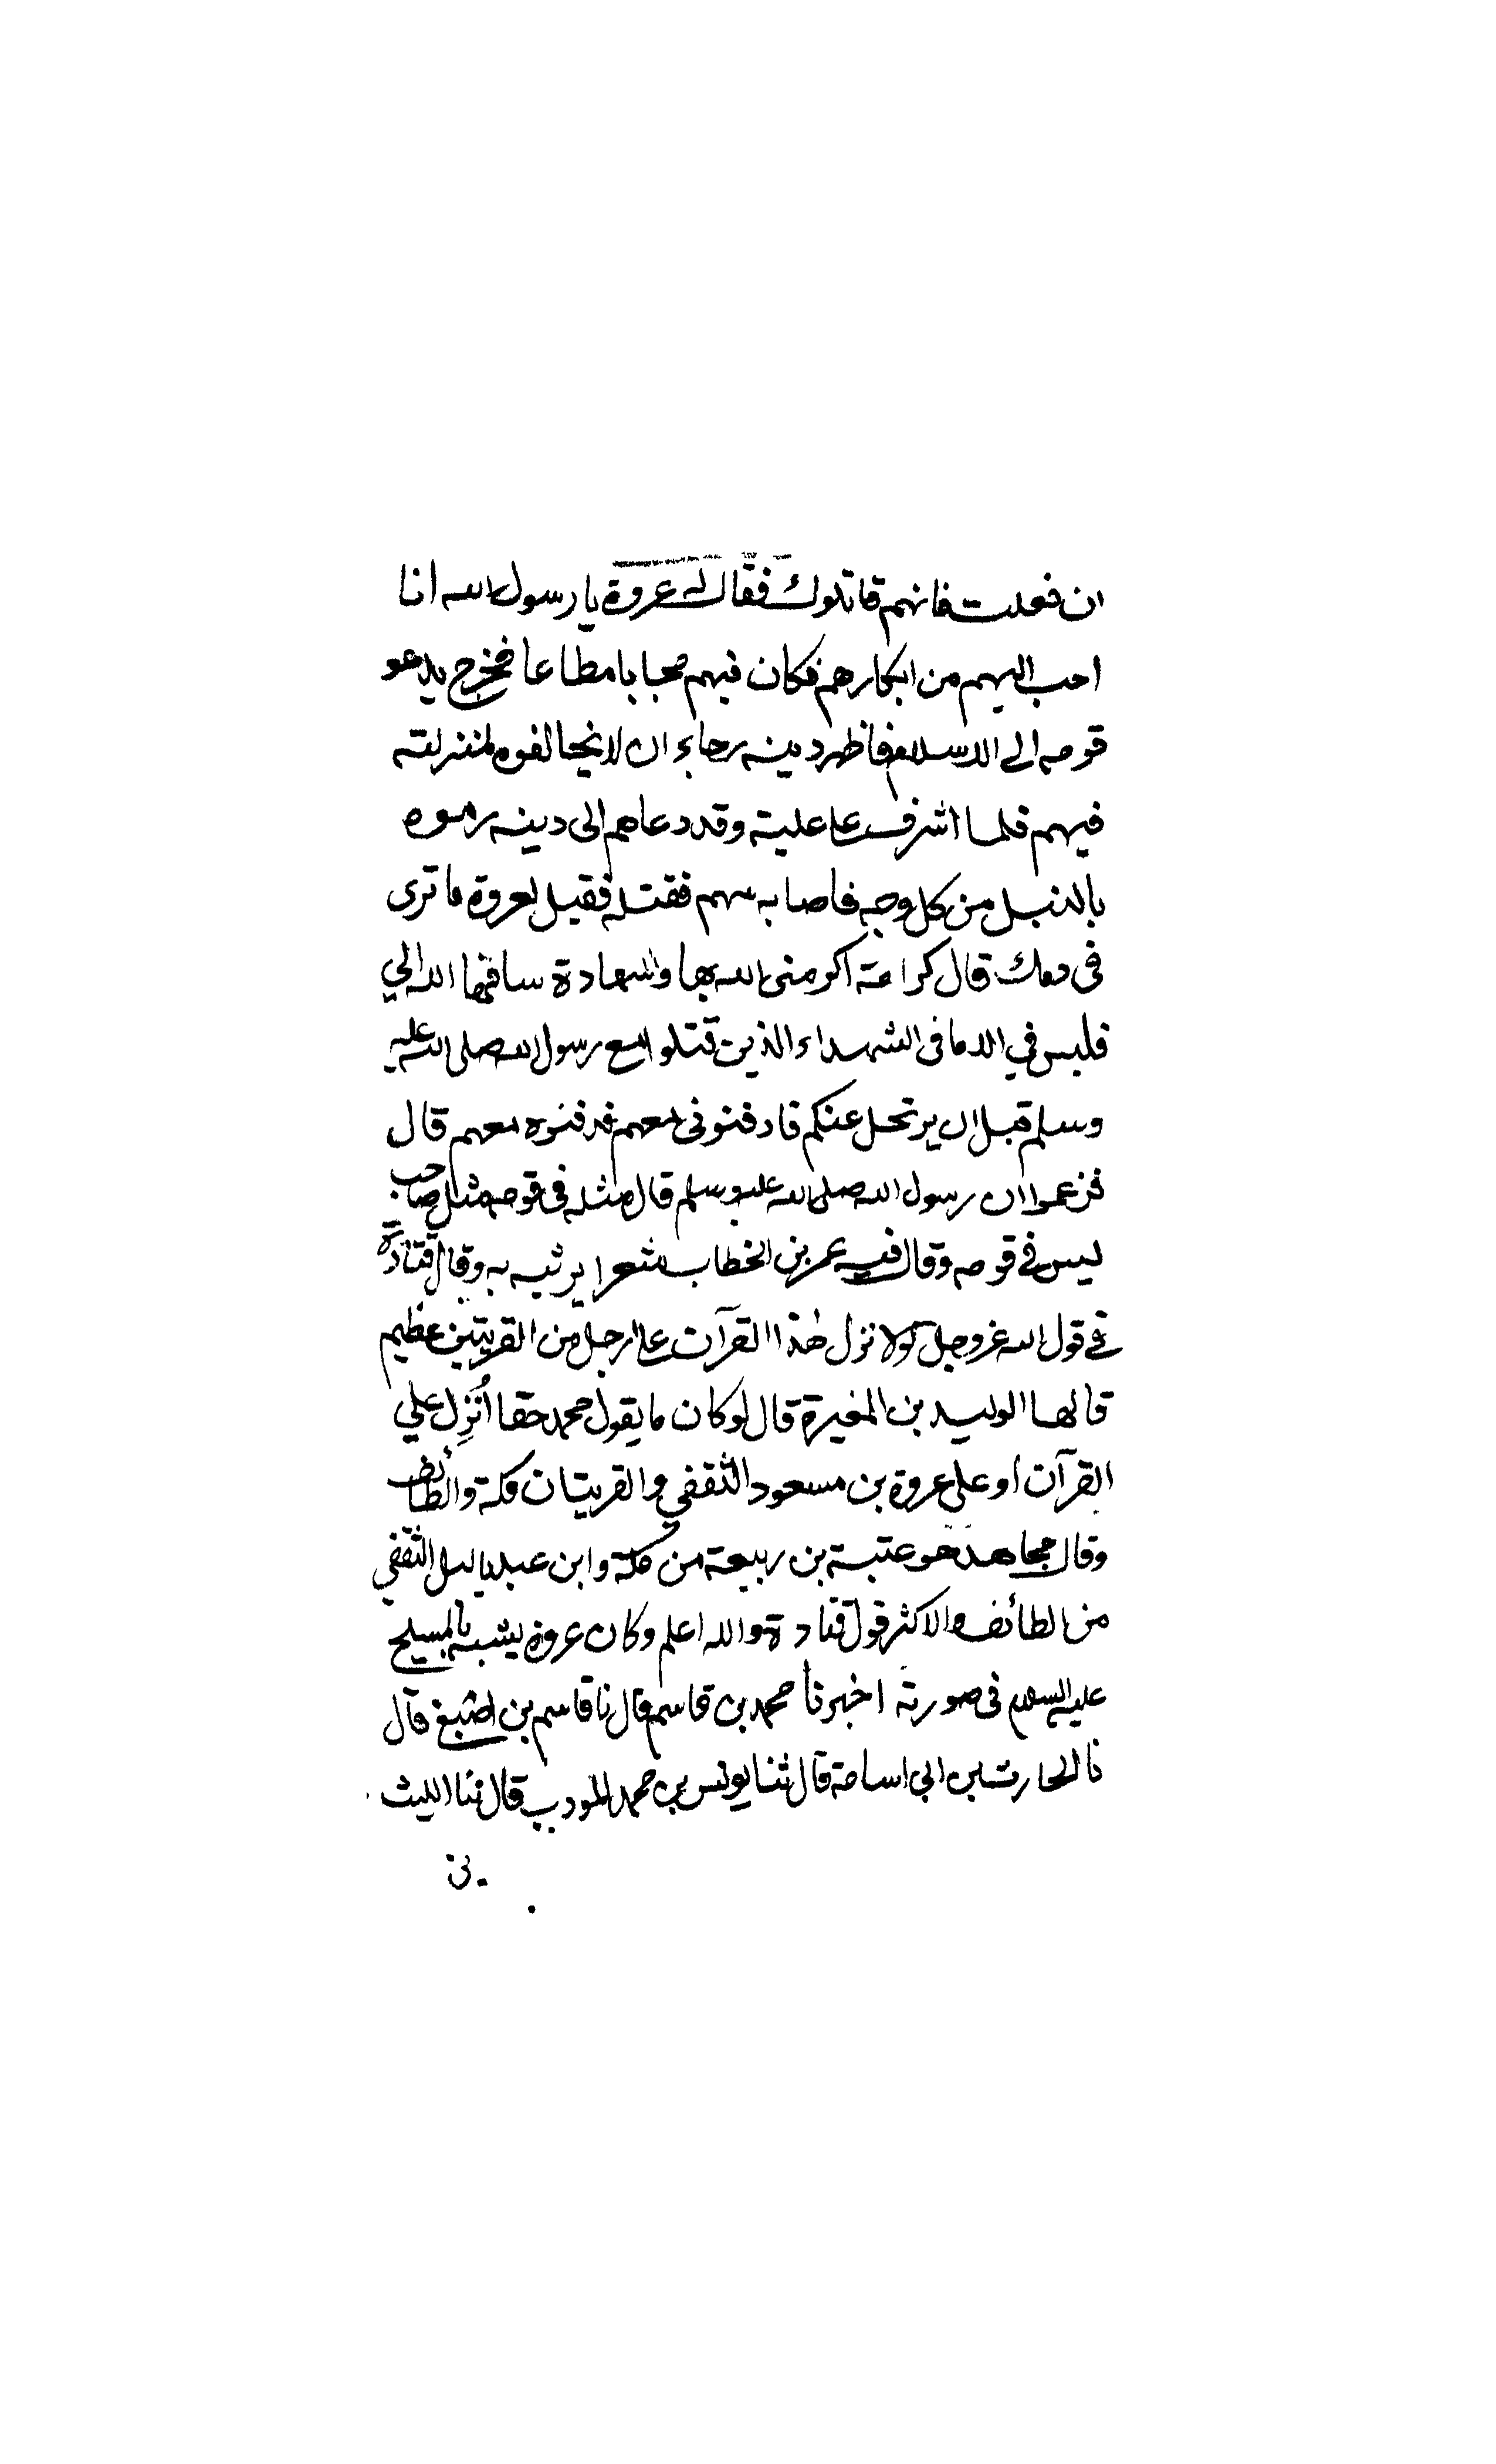 ان فعلت فانهم قاتلوك فقال له عروة يا رسول الله انا
احب اليهم من ابكارهم فكان فيهم محبا با مطاعا فخرج يدعو
قومه الى الاسلام فاظهر دينه رجاء ان لا يخالفوه لمنزلته
فيهم فلما اشرف على علية وقد دعاهم الى دينه رموه
بالنبل من كل وجه فاصابه سهم فقتله فقيل لعروة ما ترى
فى دمك قال كرامة اكرمنى الله بها وشهادة ساقها الله الي
فليس في الا ما فى الشهداء الذين قتلوا مع رسول الله صلى الله عليه
وسلم قبل ان يرتحل عنكم فادفنونى معهم فدفنوه معهم قال
فزعموا ان رسول الله صلى الله عليه وسلم قال مثله فى قومه مثل صاحب
ليس في قومه وقال فيه عمر بن الخطاب شعرا يرثيه به وقال قتادة
في قول الله عز وجل لولا نزل هذا القرآن على رجل من القريتين عظيم
قالها الوليد بن المغيرة قال لو كان ما يقول محمد حقا اُنَزِل علي
القرآن او على عروة بن مسعود الثقفي والقريتان مكة والطائف
وقال مجاهد هو عتبة بن ربيعة من مكة وابن عبد ياليل الثقفي
من الطائف والاكثر قول قتادة والله اعلم وكان عروة يشبه بالمسيح
عليه السلام فى صورته اخبرنا محمد بن قاسم قال نا قاسم بن اصبغ قال
نا الحارث بن ابى اسامة قال ثنا يونس بن محمد المودب قال ثنا الليث
بن